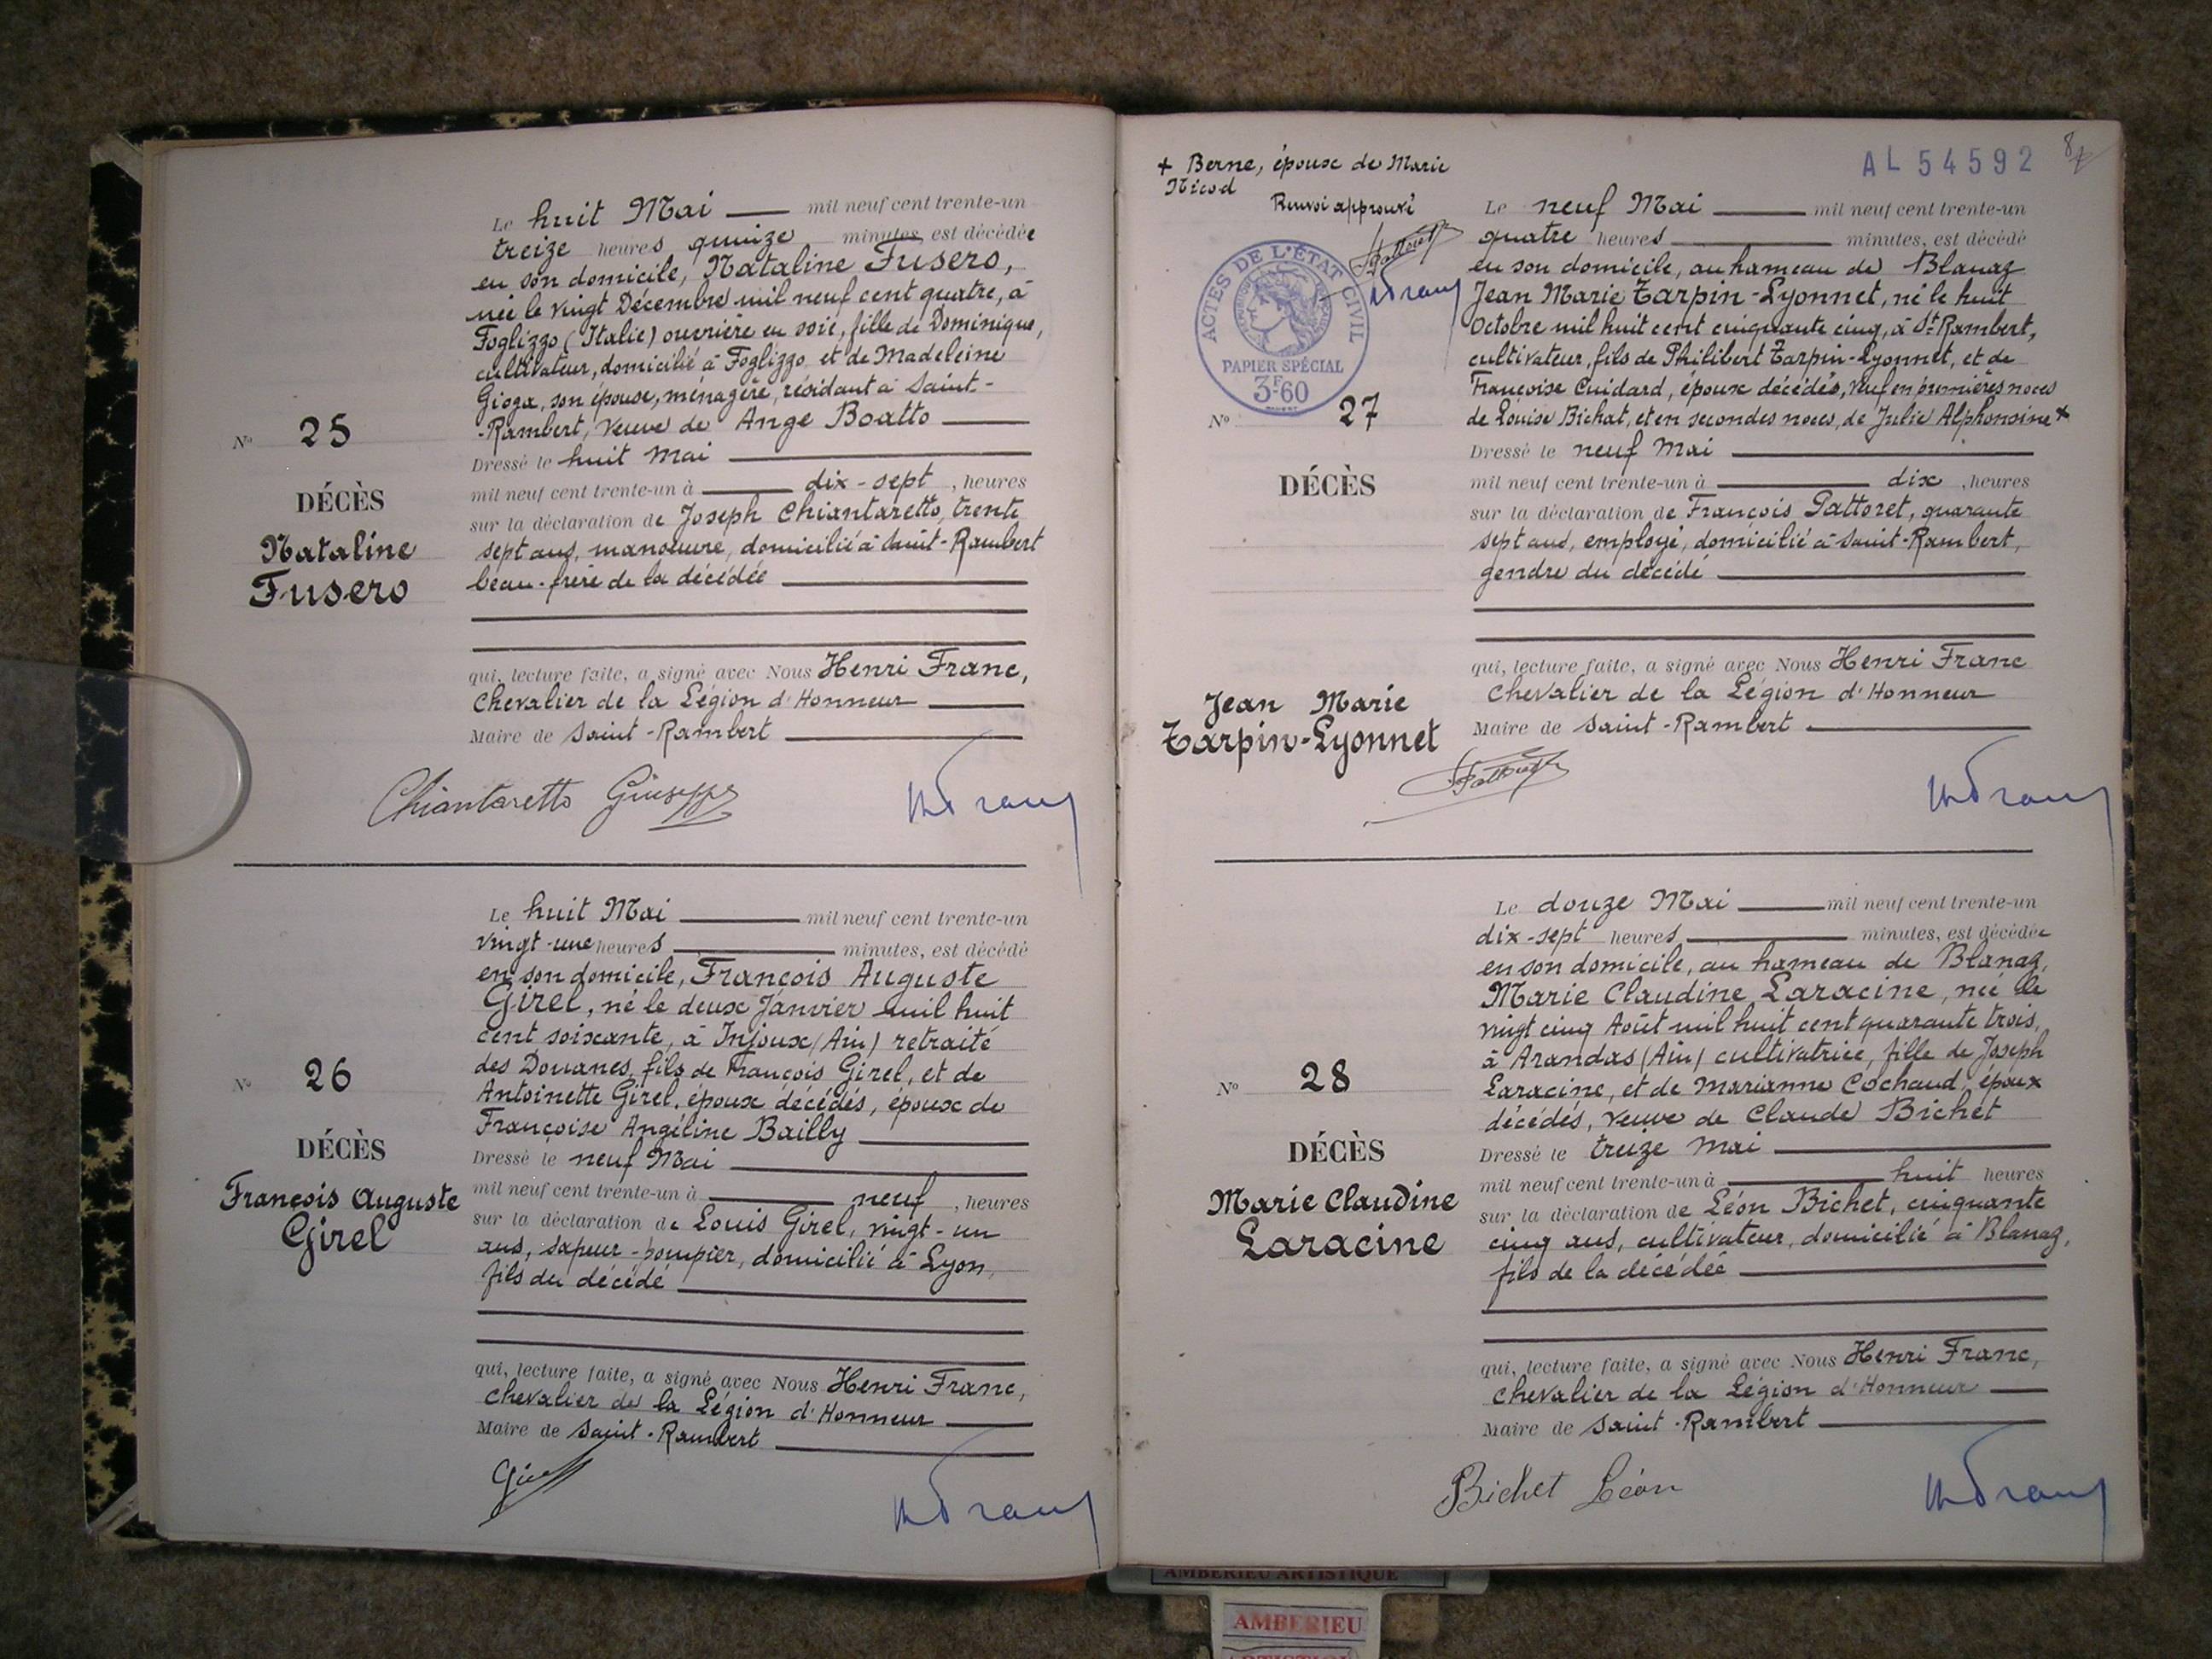 Le huit Mai mil neuf cent trente-un
treize heures quinze minutes, est décédée
en son domicile, Nataline Fusero,
née le vingt Décembre mil neuf cent quatre, à
Foglizzo (Italie) ouvrière en soie, fille de Dominique,
cultivateur, domicilié à Foglizzo et de Madeleine
Gioga, son épouse, ménagère, résidant à Saint-
-Rambert, veuve de Ange Boatto
Dressé le huit Mai
mil neuf cent trente-un à dix-sept, heures
sur la déclaration de Joseph Chiantaretto, trente
sept ans, manoeuvre, domicilié à Saint-Rambert
beau-frère de la décédée
qui, lecture faite, a signé avec Nous Henri Franc,
Chevalier de la Légion d'Honneur
Maire de Saint-Rambert
N° 25
DÉCÈS
Nataline
Fusero
Chiantaretto Giuseppe
Le huit Mai mil neuf cent trente-un
vingt-une heures minutes, est décédé
en son domicile, François Auguste
Girel, né le deux Janvier mil huit
cent soixante, à Injoux (Ain) retraité
des Douanes, fils de François Girel, et de
Antoinette Girel, époux décédés, époux de
Françoise Angéline Bailly
Dressé le neuf Mai
mil neuf cent trente-un à neuf, heures
sur la déclaration de Louis Girel, vingt-un
ans, sapeur-pompier, domicilié à Lyon,
fils du décédé
qui, lecture faite, a signé avec Nous Henri Franc,
Chevalier de la Légion d'Honneur
Maire de Saint-Rambert
N° 26
DÉCÈS
François Auguste
Girel
+ Berne, époux de Marie
Nicod
Renvoi approuvé
AL 54592
ACTES DE L'ÉTAT CIVIL
PAPIER SPÉCIAL
3F60
Le neuf Mai mil neuf cent trente-un
quatre heures minutes, est décédé
en son domicile, au hameau de Blanaz
Jean Marie Tarpin-Lyonnet, né le huit
Octobre mil huit cent cinquante cinq, à St Rambert,
cultivateur, fils de Philibert Tarpin-Lyonnet, et de
Françoise Cuidard, époux décédés, veuf en premières noces
de Louise Bichat, et en secondes noces, de Julie Alphonsine +
Dressé le neuf Mai
mil neuf cent trente-un à dix, heures
sur la déclaration de François Pattoret, quarante
sept ans, employé, domicilié à Saint-Rambert,
gendre du décédé
qui, lecture faite, a signé avec Nous Henri Franc
Chevalier de la Légion d'Honneur
Maire de Saint-Rambert
N° 27
DÉCÈS
Jean Marie
Tarpin-Lyonnet
Le douze Mai mil neuf cent trente-un
dix-sept heures minutes, est décédée
en son domicile, au hameau de Blanaz,
Marie Claudine Laracine, née le
vingt cinq Août mil huit cent quarante trois,
à Arandas (Ain) cultivatrice, fille de Joseph
Laracine, et de Marianne Cochaud, époux
décédés, veuve de Claude Bichet
Dressé le treize Mai
mil neuf cent trente-un à huit heures
sur la déclaration de Léon Bichet, cinquante
cinq ans, cultivateur, domicilié à Blanaz,
fils de la décédée
qui, lecture faite, a signé avec Nous Henri Franc,
Chevalier de la Légion d'Honneur
Maire de Saint-Rambert
N° 28
DÉCÈS
Marie Claudine
Laracine
Bichet Léon
AMBERIEU ARTISTIQUE
AMBERIEU
ARTISTIQUE